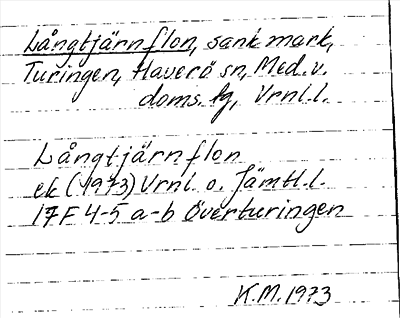 Långtjärnflon, sank mark,
Turingen, Haverö sn, Med. v.
doms. fg, Vrnl. l.
Långtjärnflon
ek (1973) Vrnl. o. Jämtl. l.
17F 4-5 a-b Överturingen
K.M. 1973